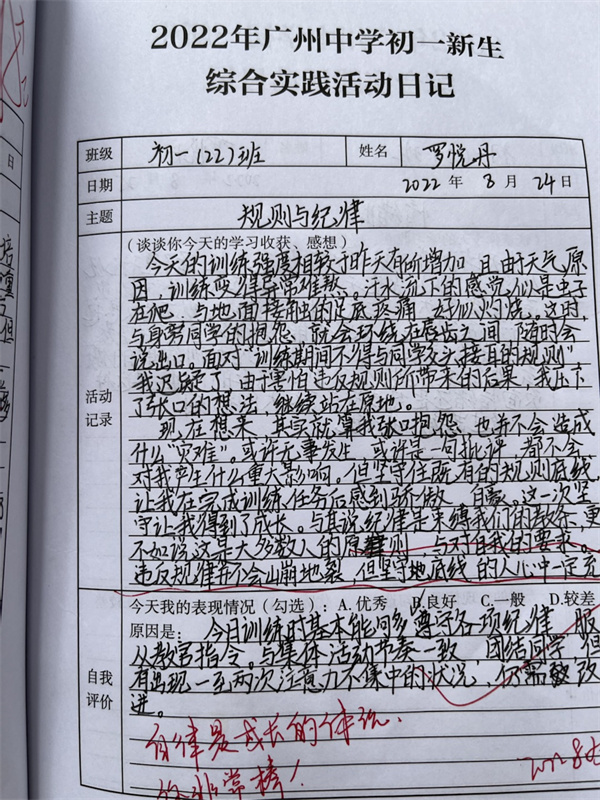 2022年广州中学初一新生
综合实践活动日记
班级 初一（22）班 姓名 罗悦丹
日期 2022 年 8 月 24 日
主题 规则与纪律
（谈谈你今天的学习收获、感想）
今天的训练强度相较于昨天有所增加，且由于天气原
因，训练变得异常难熬。汗水流下的感觉似是虫子
在爬，与地面接触的足底疼痛，好似灼烧。这时，
与身旁同学的抱怨，就会环绕在唇齿之间，随时会
说出口。面对“训练期间不得与同学交头接耳的规则”
我迟疑了，由于害怕违反规则所带来的后果，我压下
了张口的想法，继续站在原地。
现在想来，其实就算我张口抱怨，也并不会造成
什么“灾难”，或许无事发生，或许是一句批评，都不会
对我产生什么重大影响。但坚守住既有的规则底线，
让我在完成训练任务后感到骄傲、自豪。这一次坚
守让我得到了成长。与其说纪律是束缚我们的教条，更
不如说这是大多数人的原则，与对自我的要求。
违反规律并不会山崩地裂，但坚守地底线的人心中一定充
活动
记录
今天我的表现情况（勾选）：A. 优秀 B.良好 C.一般 D.较差
原因是： 今日训练时基本能够遵守各项纪律，服
从教官指令。与集体活动节奏一致，团结同学，但
有出现一至两次注意力不集中的状况，仍需改
进。
自我
评价
自律是成长的体现.
你非常棒！